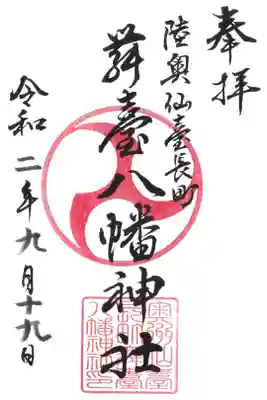 奉拝
陸奥仙臺長町
舞臺八幡神社
令和二年九月十九日